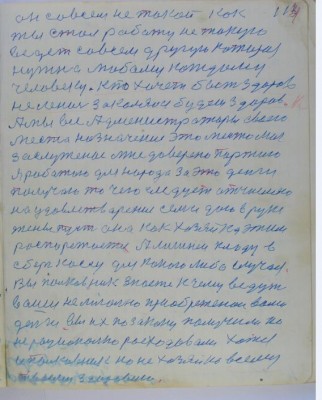 он совсем не такой как
ты стал работу не такую
ведет совсем другую которая
нужна любому каждому
человеку. Кто хочет быть здоров
не ленись закаляйся будешь здоров.
А мы все Администраторы своего
места назначения это место моя
заслуженое мне доверено Партиею
я работаю для народа за это деньги
получаю то чего следует отчисляю
на удовлетворение семьи даю в руки
жены пусть она как хозяйка этим
распоряжается А лишние кладу в
сбер кассу для какого либо случая.
Вы полковник знаете к чему ведут
ваши нелегально приобретеное вами
деньги вы их по закону получили но
нерационально расходовали Хотя
и полковник но не хозяин всему
своему здоровию.